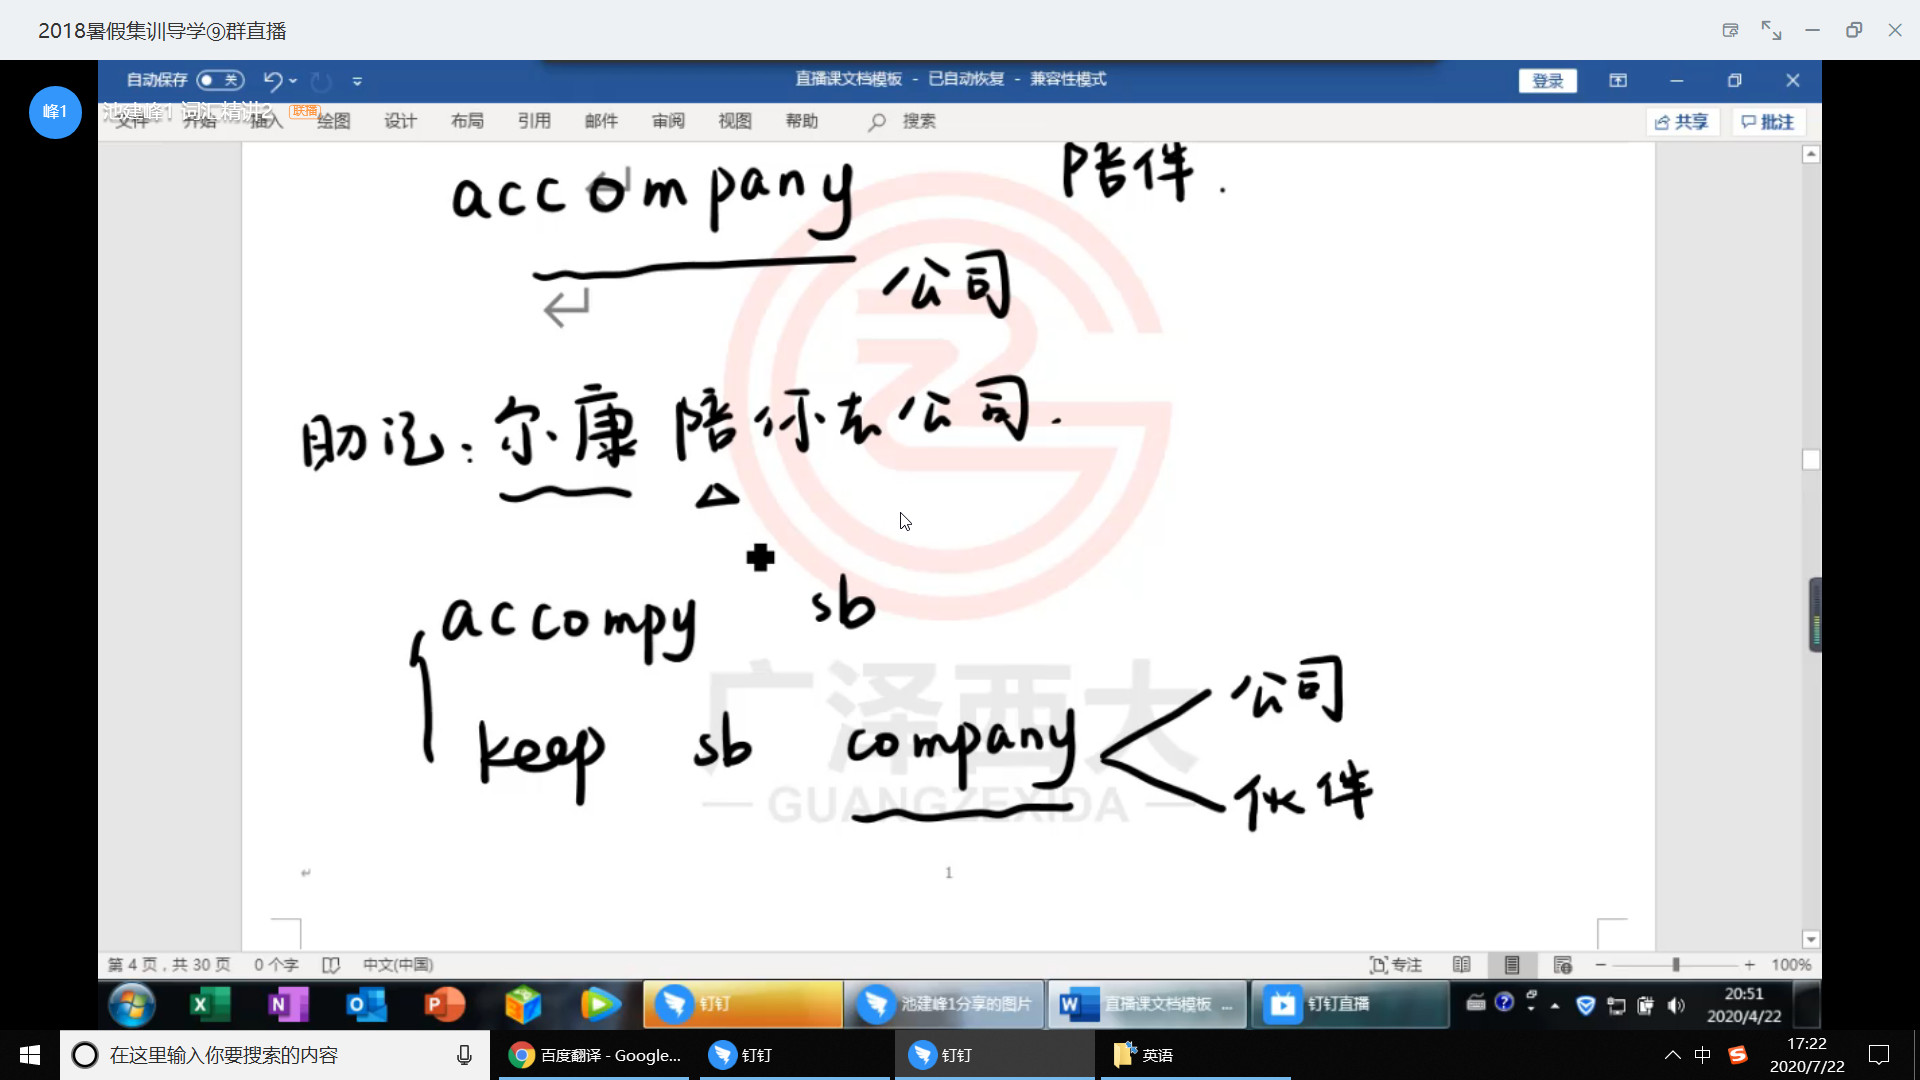 2018暑假集训导学⑨群直播
自动保存 关 直播课文档模板 - 已自动恢复 - 兼容性模式 登录
峰1 池建峰1 词汇精讲2 联播
文件 开始 插入 绘图 设计 布局 引用 邮件 审阅 视图 帮助 搜索 共享 批注
accompany 陪伴.
公司
助记:尔康陪你去公司.
accompy sb
keep sb company 公司
伙伴
广泽西大
— GUANGZEXIDA —
1
第 4 页，共 30 页 0 个字 中文(中国) 专注 100%
钉钉 池建峰1分享的图片 直播课文档模板 ... 钉钉直播 20:51
2020/4/22
在这里输入你要搜索的内容 百度翻译 - Google... 钉钉 钉钉 英语 中 17:22
2020/7/22